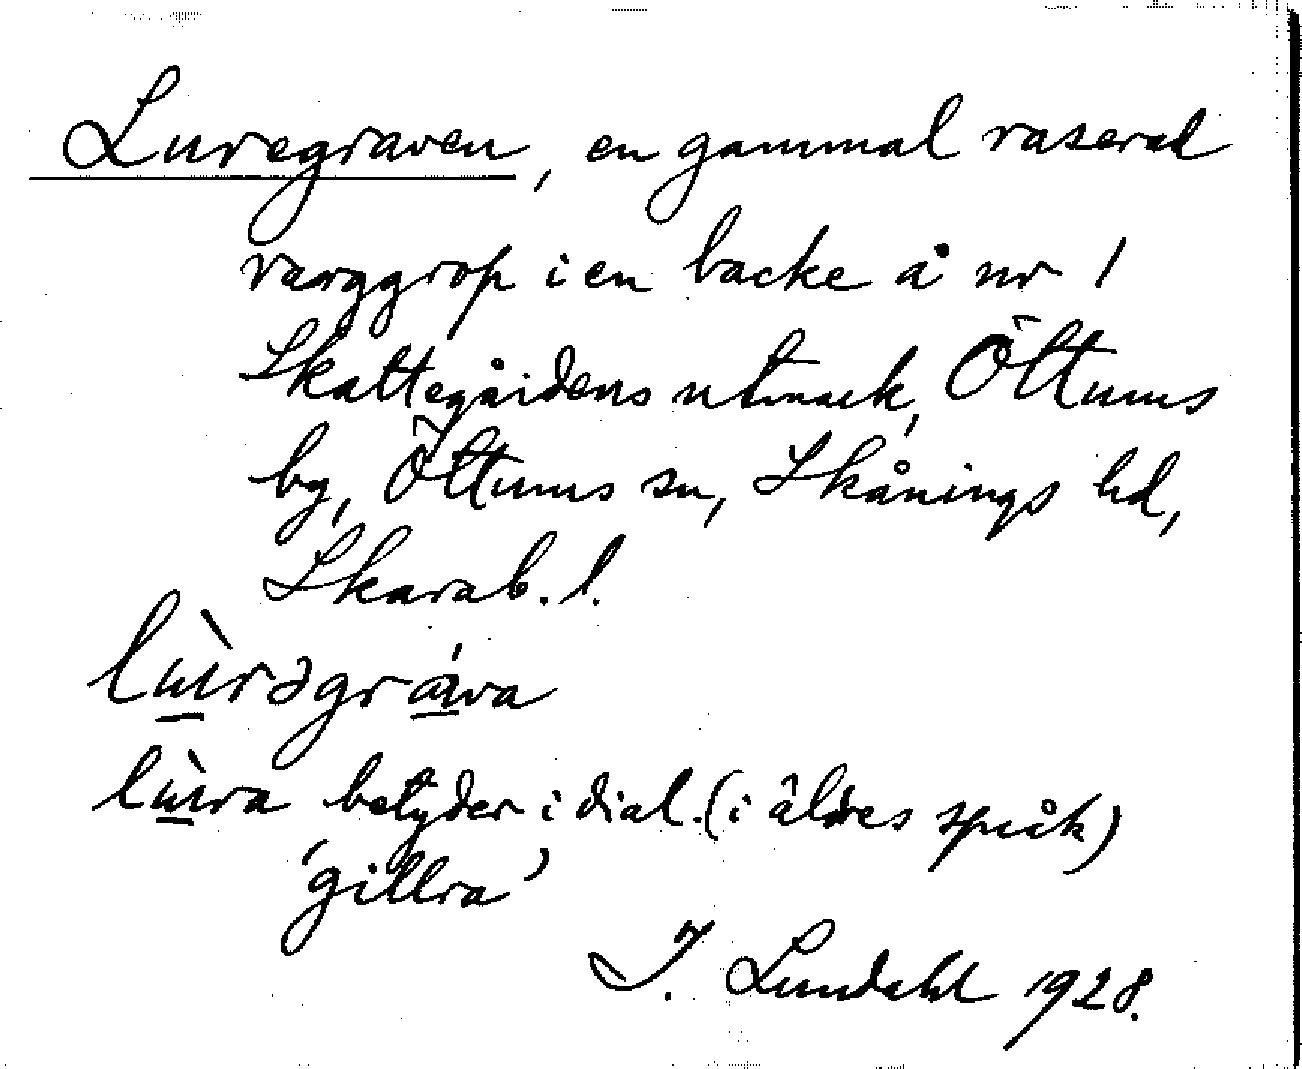 Luregraven, en gammal raserad
varggrop i en backe å nr 1
Skattegårdens utmark, Öttums
by, Öttums sn, Skånings hd,
Skarab. l.
lùrəgráva
lùra betyder i dial. (i äldres språk)
'gillra'
I. Lundahl 1928.